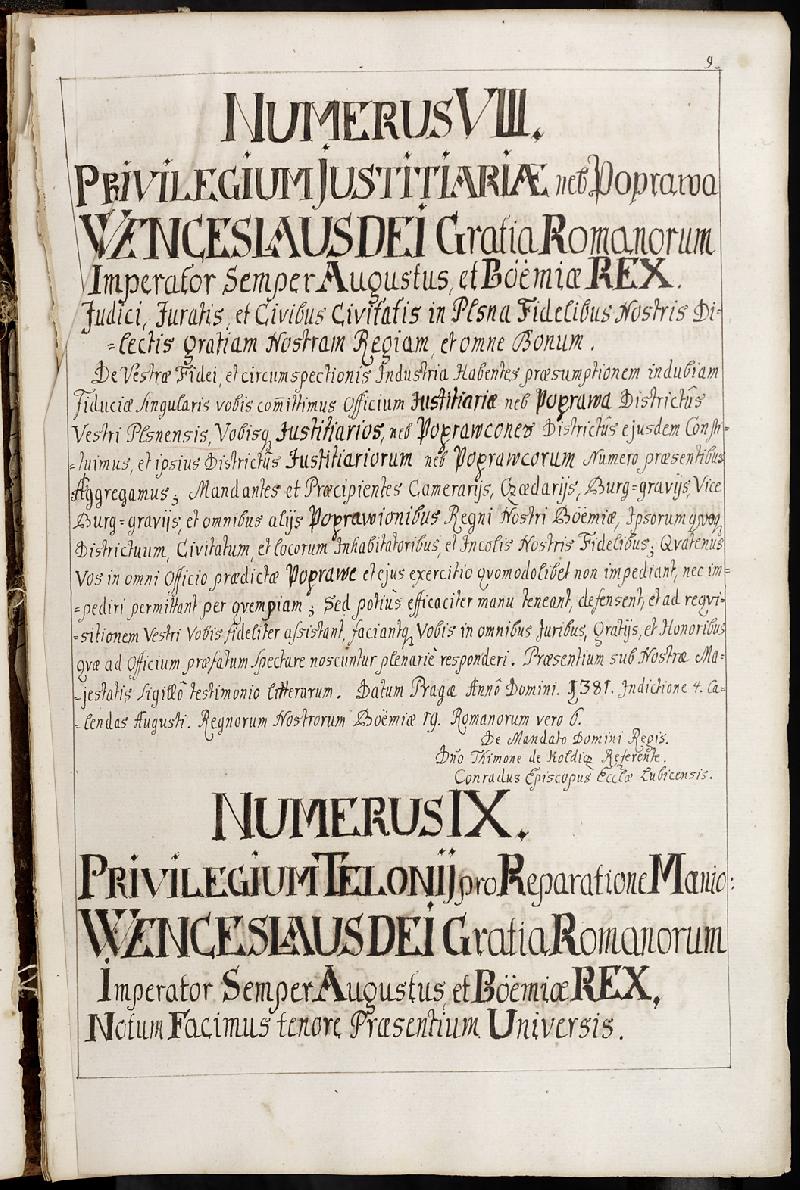 9.
NUMERUS VIII.
PRIVILEGIUM JUSTITIARIÆ neb Poprawa
WENCESLAUS DEI Gratia Romanorum
Imperator Semper Augustus, et Böëmiæ REX.
Judici, Juratis, et Civibus Civitatis in Plsna Fidelibus Nostris Di-
-lectis gratiam Nostram Regiam, et omne Bonum.
De Vestræ Fidei, et circumspectionis Industria Habentes præsumptionem indubiam
Fiduciæ singularis vobis comittimus Officium Justitiariæ neb Poprawa Districtûs
Vestri Plsnensis, Vobisq Justitiarios, neb Poprawcones Districtûs ejusdem Consti-
-tuimus, et ipsius Districtûs Justitiariorum neb Poprawcorum Numero præsentibus
Aggregamus; Mandantes et Præcipientes Camerarijs, Czædarijs, Burg-gravijs, Vice
Burg-gravijs, et omnibus alijs Poprawionibus Regni Nostri Böëmiæ, Ipsorum qvoq
Districtuum, Civitatum, et locorum Inhabitatoribus, et Incolis Nostris Fidelibus; Qvatenus
Vos in omni Officio prædictæ Poprawe et ejus exercitio qvomodolibet non impediant, nec im-
-pediri permittant per qvempiam; Sed potiùs efficaciter manu teneant, defensent, et ad reqvi-
-sitionem Vestri Vobis fideliter assistant, faciantq Vobis in omnibus Juribus, Gratijs, et Honoribus
qvæ ad Officium præfatum spectare noscuntur plenariè responderi. Præsentium sub Nostræ Ma-
-jestatis Sigillô testimonio litterarum. Datum Pragæ Annô Domini. 1381. Indictione 4. Ca-
-lendas Augusti. Regnorum Nostrorum Böëmiæ 19. Romanorum vero 6.
De Mandato Domini Regis.
Dño Thimone de Koldicz Referente.
Conradus Episcopus Ecclæ Lubicensis.
NUMERUS IX.
PRIVILEGIUM TELONIJ pro Reparatione Maniæ:
WENCESLAUS DEI Gratia Romanorum
Imperator Semper Augustus, et Böëmiæ REX.
Notum Facimus tenore Præsentium Universis.